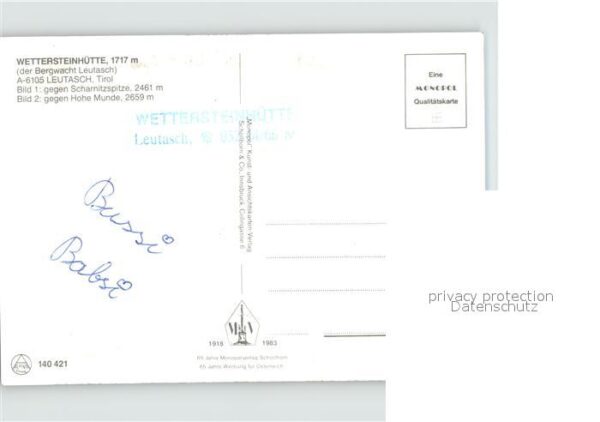 WETTERSTEINHÜTTE, 1717 m
(der Bergwacht Leutasch)
A-6105 LEUTASCH, Tirol
Bild 1: gegen Scharnitzspitze, 2461 m
Bild 2: gegen Hohe Munde, 2659 m
WETTERSTEINHÜTTE
Leutasch,
Eine
MONOPOL
Qualitätskarte
"Monopol" Kunst- und Ansichtskarten-Verlag
Schöllhorn & Co., Innsbruck
Bussi
Babsi
privacy protection
Datenschutz
1918 1983
65 Jahre
65 Jahre Werbung für Österreich
140 421